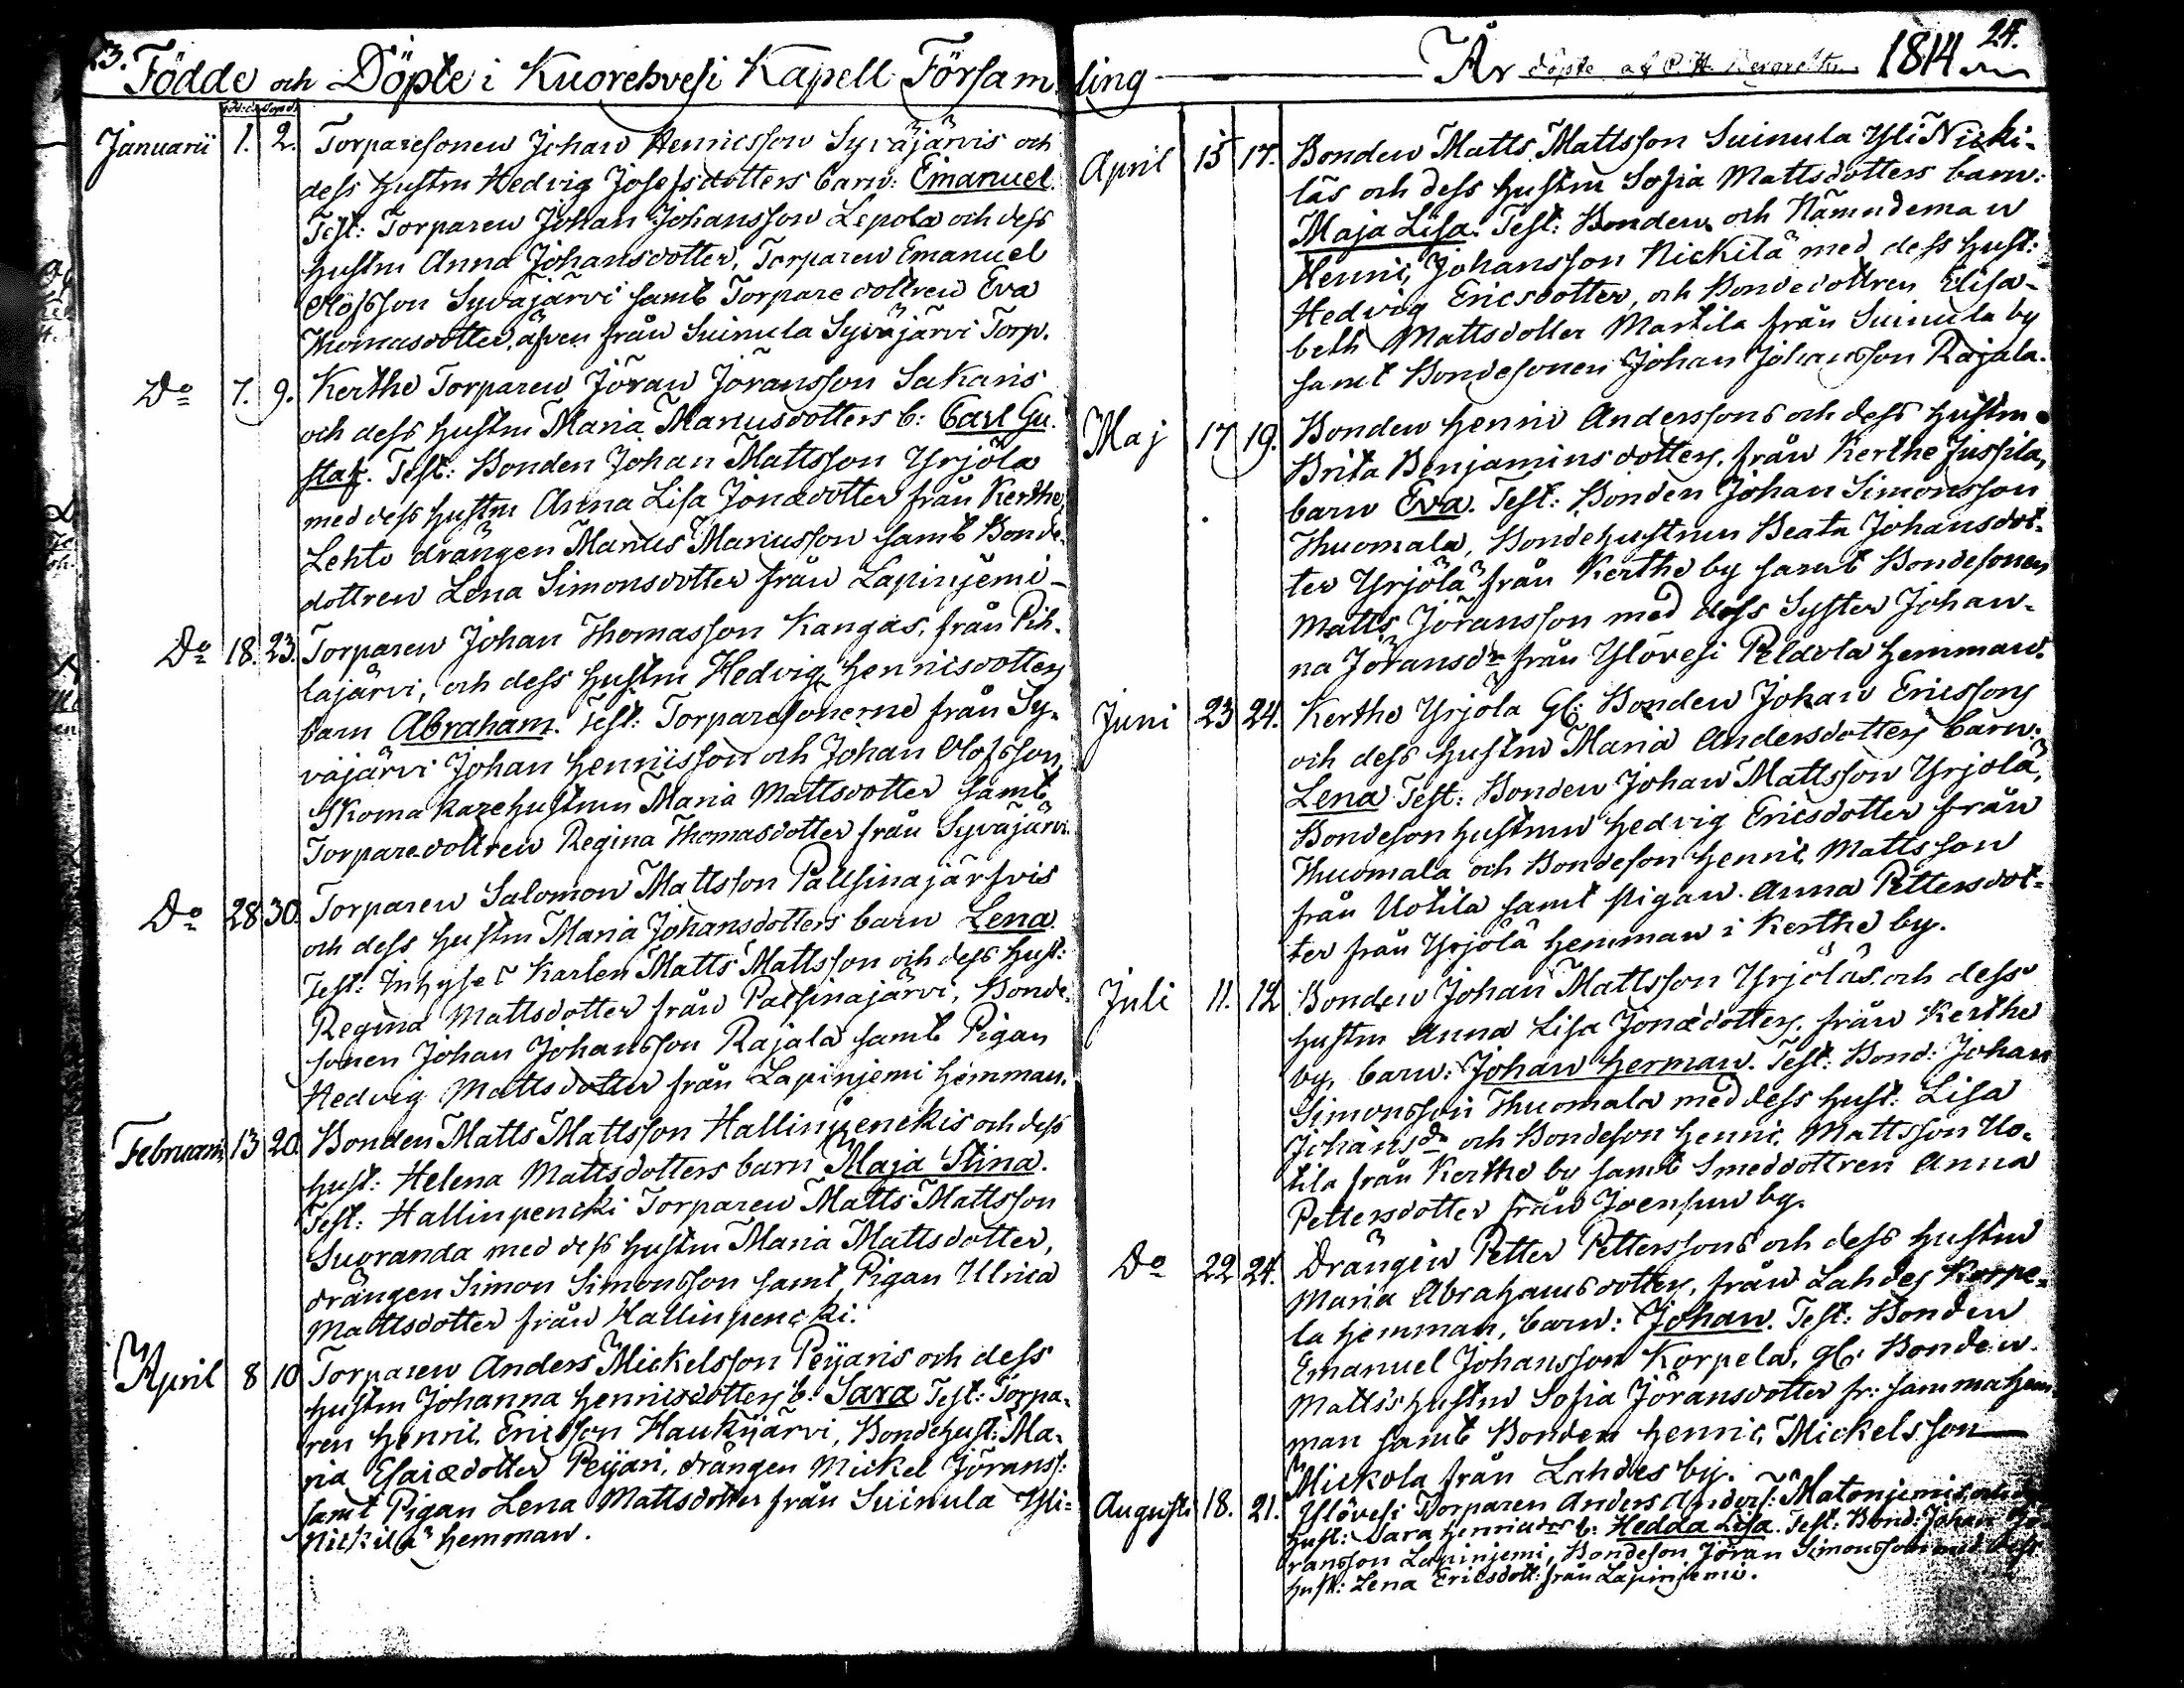 23. Födde och Döpte i Kuorehvesi Kapell Församling
Januarii 1. 2. Torparesonen Johan Henricsson Syväjärvis och
dess hustru Hedvig Josefsdotters barn: Emanuel.
Test: Torparen Johan Johansson Lepola och dess
hustru Anna Johansdotter, Torparen Emanuel
Olofsson Syväjärvi samt Torparedottren Eva
Thomasdotter, äfven från Suinula Syväjärvi Torp.
Do 7. 9. Kerthe Torparen Jöran Jöransson Sakaris
och dess hustru Maria Mariusdotters b: Carl Gu-
staf. Test: Bonden Johan Mattsson Yrjölä
med dess hustru Anna Lisa Jonædotter från Kerthe,
Lehto drängen Marius Mariusson samt Bonde-
dottren Lena Simonsdotter från Lapinjemi
Do 18. 23. Torparen Johan Thomasson Kangas, från Pih-
lajärvi, och dess hustru Hedvig Henricsdotters
barn Abraham. Test: Torparesönerne från Sy-
väjärvi Johan Henricsson och Johan Olofsson,
Skomakarehustrun Maria Mattsdotter samt
Torparedottren Regina Thomasdotter från Syväjärvi.
Do 28 30. Torparen Salomon Mattsson Palsinajärfvis
och dess hustru Maria Johansdotters barn Lena.
Test: Inhyses Karlen Matts Mattsson och dess hust:
Regina Mattsdotter från Palsinajärvi, Bonde-
sonen Johan Johansson Rajala samt Pigan
Hedvig Mattsdotter från Lapinjemi hemman.
Februarii 13 20. Bonden Matts Mattsson Hallinpenckis och dess
hust: Helena Mattsdotters barn Maja Stina.
Test: Hallinpencki Torparen Matts Mattsson
Suoranda med dess hustru Maria Mattsdotter,
drängen Simon Simonsson samt Pigan Ulrica
Mattsdotter från Hallinpencki.
April 8 10 Torparen Anders Mickelsson Peijaris och dess
hustru Johanna Henricsdotters b: Sara Test: Torpa-
ren Henric Ericsson Haukijärvi, Bondehust: Ma-
ria Esaiædotter Peijari, drängen Mickel Jöranss:
samt Pigan Lena Mattsdotter från Suinula Yli-
Nickilä hemman.
År döpte af P. H. 1814 24.
April 15 17. Bonden Matts Mattsson Suinula Yli Nicki-
läs och dess hustru Sofia Mattsdotters barn:
Maja Lisa. Test: Bonden och Nämndeman
Henric Johansson Nickilä med dess hust:
Hedvig Ericsdotter, och Bondedottren Elisa-
beth Mattsdotter Martila från Suinula by
samt Bondesonen Johan Johansson Rajala.
Maj 17 19. Bonden Henric Anderssons och dess hustru
Brita Benjaminsdotters, från Kerthe Jussila,
barn Eva. Test: Bonden Johan Simonsson
Thuomala, Bondehustrun Beata Johansdot-
ter Yrjölä från Kerthe by samt Bondesonen
Matts Jöransson med dess Syster Johan-
na Jöransdr från Ylövesi Peldola hemman.
Juni 23 24. Kerthe Yrjölä Gl: Bonden Johan Ericssons
och dess hustru Maria Andersdotters barn:
Lena Test: Bonden Johan Mattsson Yrjölä,
Bondesonhustrun Hedvig Ericsdotter från
Thuomala och Bondeson Henric Mattsson
från Uotila samt pigan Anna Pettersdot-
ter från Yrjölä hemman i Kerthe by.
Juli 11. 12 Bonden Johan Mattsson Yrjöläs och dess
hustru Anna Lisa Jonædotters, från Kerthe
by, barn: Johan Herman. Test: Bond: Johan
Simonsson Thuomala med dess hust: Lisa
Johansdr och Bondeson Henric Mattsson Uo-
tila från Kerthe by samt Smeddottren Anna
Pettersdotter från Joensuu by.
Do 22 24. Drängen Petter Petterssons och dess hustru
Maria Abrahamsdotters, från Lahdes Korpe-
la hemman, barn: Johan. Test: Bonden
Emanuel Johansson Korpela, gl: Bonden
Matts's hustru Sofia Jöransdotter fr: samma hem-
man samt Bonden Henric Mickelsson
Mickola från Lahdes by.
Augusti 18. 21. Ylövesi Torparen Anders Anders: Matonjemis och
hust: Sara Henricsdrs b: Hedda Lisa. Test: Bond: Johan Jö-
ransson Lapinjemi, Bondeson Jöran Simonsson med dess
hust: Lena Ericsdott: från Lapinjemi.